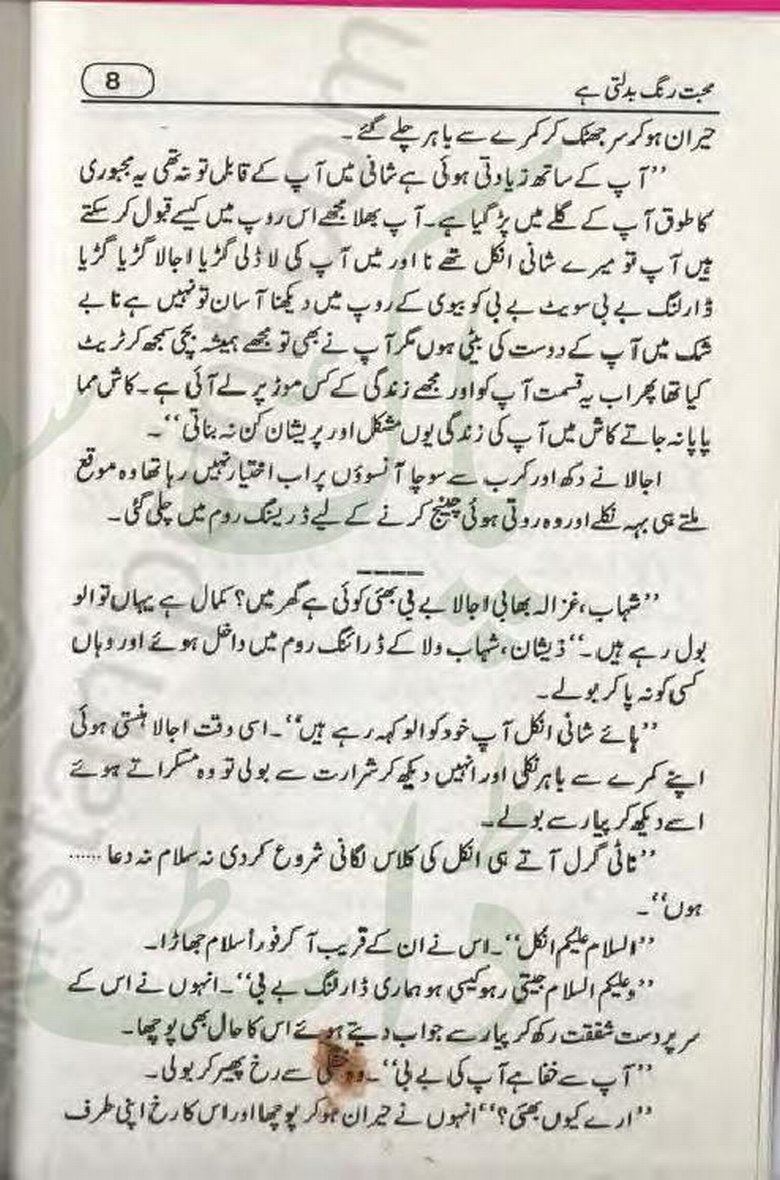 محبت رنگ بدلتی ہے
8
حیران ہو کر سر جھٹک کر کمرے سے باہر چلے گئے۔
’’آپ کے ساتھ زیادتی ہوئی ہے شانی میں آپ کے قابل تو نہ تھی یہ مجبوری
کا طوق آپ کے گلے میں پڑ گیا ہے۔ آپ بھلا مجھے اس روپ میں کیسے قبول کر سکتے
ہیں آپ تو میرے شانی انکل تھے نا اور میں آپ کی لاڈلی گڑیا اجالا گڑیا گڑیا
ڈارلنگ بے بی سویٹ بے بی کو بیوی کے روپ میں دیکھنا آسان تو نہیں ہے نا بے
شک میں آپ کے دوست کی بیٹی ہوں مگر آپ نے بھی تو مجھے ہمیشہ بچی سمجھ کر ٹریٹ
کیا تھا پھر اب یہ قسمت آپ کو اور مجھے زندگی کے کس موڑ پر لے آئی ہے۔ کاش مما
پاپا نہ جاتے کاش میں آپ کی زندگی یوں مشکل اور پریشان کن نہ بناتی‘‘۔
اجالا نے دکھ اور کرب سے سوچا آنسوؤں پر اب اختیار نہیں رہا تھا وہ موقع
ملتے ہی بہہ نکلے اور وہ روتی ہوئی چینج کرنے کے لیے ڈریسنگ روم میں چلی گئی۔
’’شہاب، غزالہ بھابی اجالا بے بی بھئی کوئی ہے گھر میں؟ کمال ہے یہاں تو الو
بول رہے ہیں۔‘‘ ذیشان، شہاب ولا کے ڈرائنگ روم میں داخل ہوئے اور وہاں
کسی کو نہ پا کر بولے۔
’’ہائے شانی انکل آپ خود کو الو کہہ رہے ہیں‘‘۔ اسی وقت اجالا ہنستی ہوئی
اپنے کمرے سے باہر نکلی اور انہیں دیکھ کر شرارت سے بولی تو وہ مسکراتے ہوئے
اسے دیکھ کر پیار سے بولے۔
’’ناٹی گرل آتے ہی انکل کی کلاس لگانی شروع کر دی نہ سلام نہ دعا ......
ہوں‘‘۔
’’السلام علیکم انکل‘‘۔ اس نے ان کے قریب آ کر فوراً سلام جھاڑا۔
’’وعلیکم السلام جیتی رہو کیسی ہو ہماری ڈارلنگ بے بی‘‘۔ انہوں نے اس کے
سر پر دست شفقت رکھ کر پیار سے جواب دیتے ہوئے اس کا حال بھی پوچھا۔
’’آپ سے خفا ہے آپ کی بے بی‘‘۔ وہ خفگی سے رخ پھیر کر بولی۔
’’ارے کیوں بھئی؟‘‘ انہوں نے حیران ہو کر پوچھا اور اس کا رخ اپنی طرف